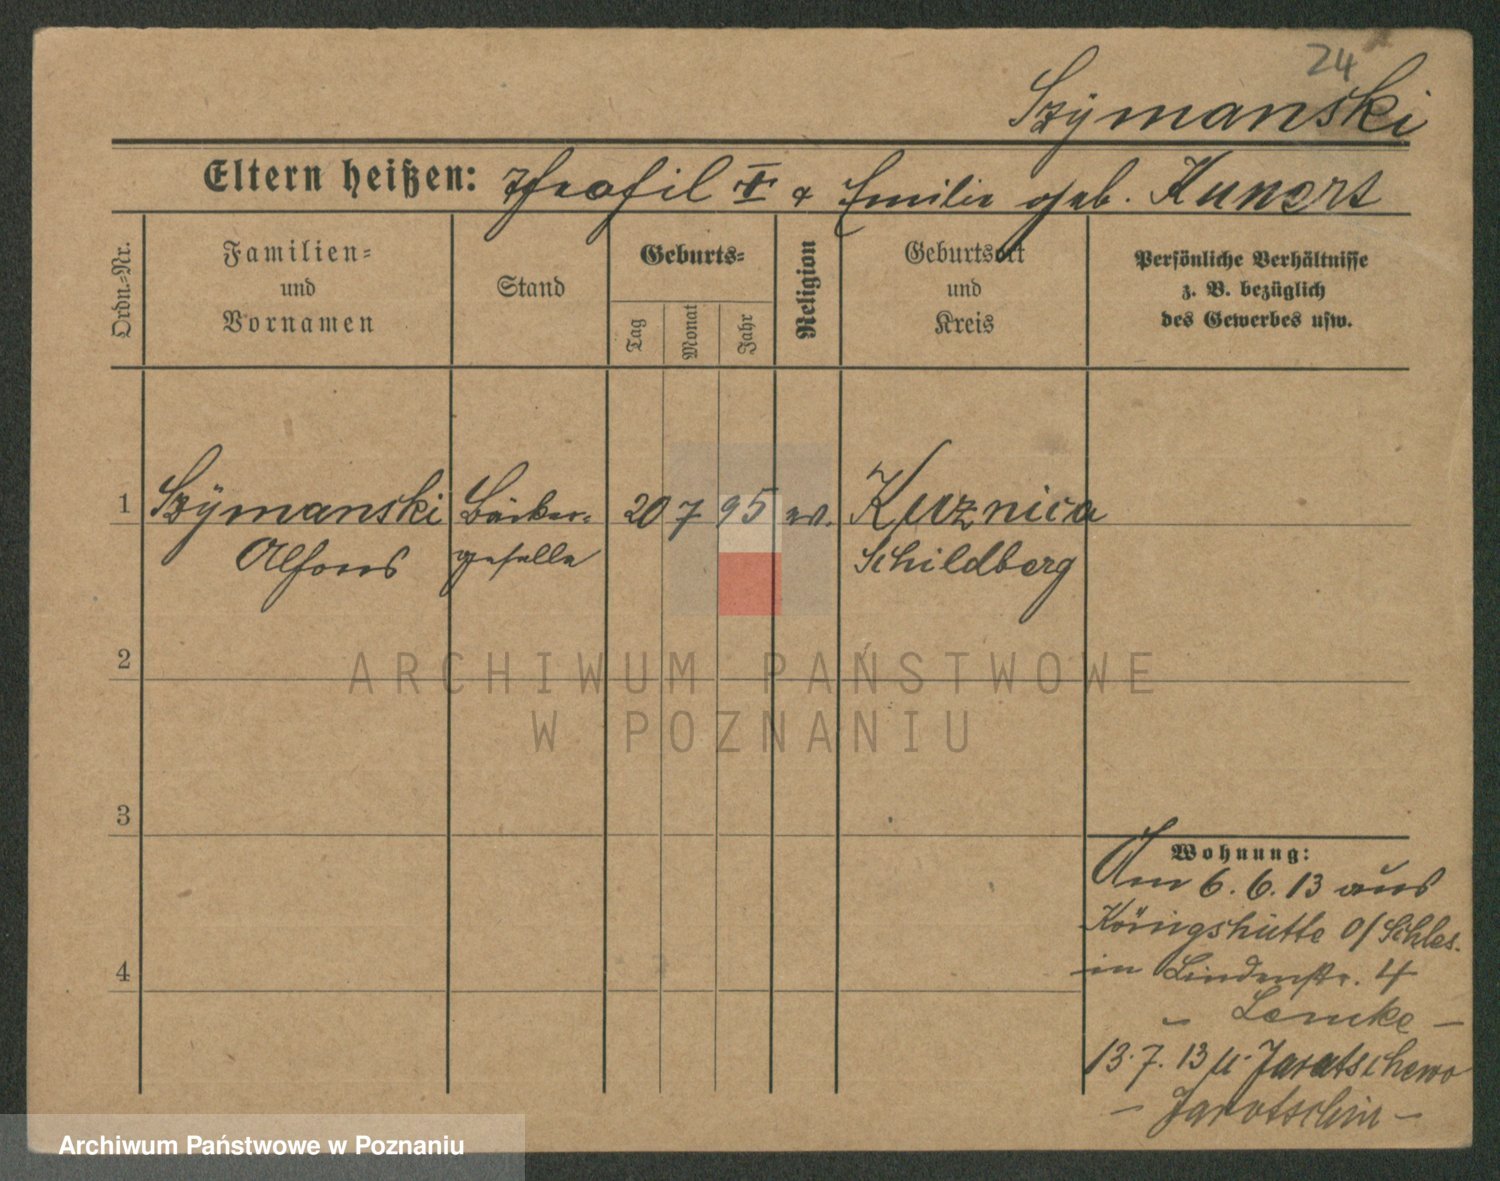 24
Szÿmanski
Eltern heißen: Theofil † & Emilie geb. Kunert
Ordn.=Nr.
Familien=
und
Vornamen
Stand
Geburts=
Tag
Monat
Jahr
Religion
Geburtsort
und
Kreis
Persönliche Verhältnisse
z. B. bezüglich
des Gewerbes usw.
1 Szÿmanski Bäcker= 20 7 95 ev. Kuznica
Alfons geselle Schildberg
2
3
4
Wohnung:
Am 6. 6. 13 aus
Königshütte O/Schles.
in Lindenstr. 4
– Lemke –
13. 7. 13 n. Jaratschewo
– Jarotschin –
ARCHIWUM PAŃSTWOWE
W POZNANIU
Archiwum Państwowe w Poznaniu